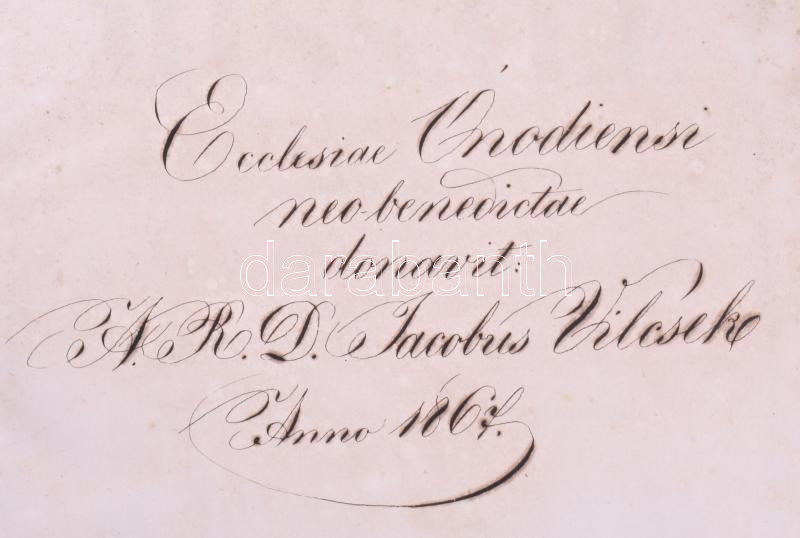 Ecclesiae Ónodiensi
neo-benedictae
donavit:
A. R. D. Jacobus Vilcsek
Anno 1867.
darabanth